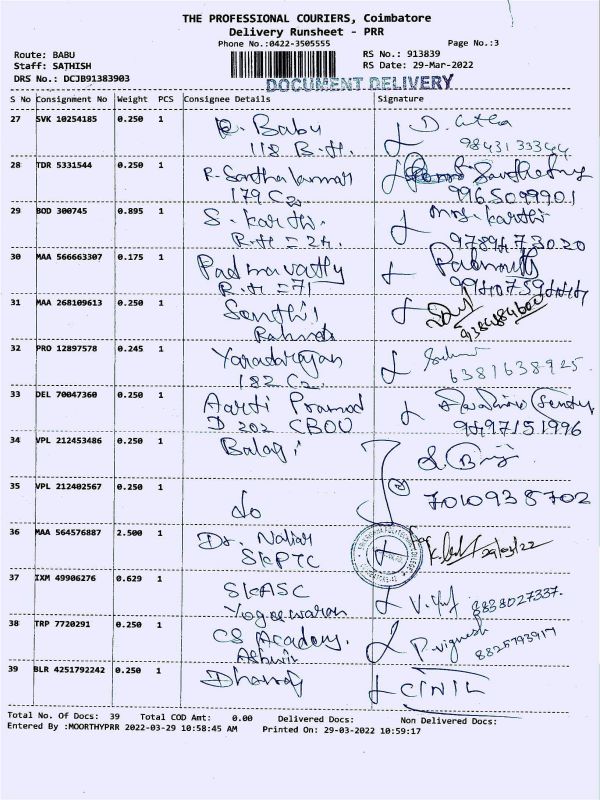 THE PROFESSIONAL COURIERS, Coimbatore
Delivery Runsheet - PRR
Phone No.:0422-3505555
Page No.:3
Route: BABU
Staff: SATHISH
DRS No.: DCJB91383903
RS No.: 913839
RS Date: 29-Mar-2022
DOCUMENT DELIVERY
S No Consignment No Weight PCS Consignee Details Signature
27 SVK 10254185 0.250 1 Babu
118 B.H. 98431 33344
28 TDR 5331544 0.250 1 R. Santhakumar
179 C2 9965099901
29 BOD 300745 0.895 1 S. Karthi. Mrs. Karthi
R.H = 24. 9789473020
30 MAA 566663307 0.175 1 Padmavathy
R.H = 71
31 MAA 268109613 0.250 1 Senthil
9384884600
32 PRO 12897578 0.245 1 Varadarajan
182 C2. 6381638925
33 DEL 70047360 0.250 1 Aarti Pramod
D 202 CBOU 9497151996
34 VPL 212453486 0.250 1 Balaji
35 VPL 212402567 0.250 1 do 7010938702
36 MAA 564576887 2.500 1 Dr.
SKPTC 29/03/22
37 IXM 49906276 0.629 1 SKASC
Yogeswaran 8838027337.
38 TRP 7720291 0.250 1 CS Academy. P. Vignesh
Ashwin 8825793917
39 BLR 4251792242 0.250 1 Dhanraj
Total No. Of Docs: 39 Total COD Amt: 0.00 Delivered Docs: Non Delivered Docs:
Entered By :MOORTHYPRR 2022-03-29 10:58:45 AM Printed On: 29-03-2022 10:59:17